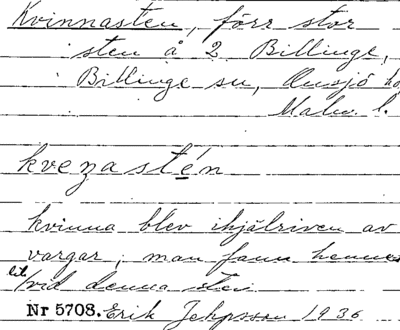 Kvinnasten, förr stor
sten å 2 Billinge,
Billinge sn, Onsjö hd,
Malm. l.
kvezastén
kvinna blev ihjälriven av
vargar, man fann hennes
vid denna sten.
Nr 5708. Erik Jeppsson 1936